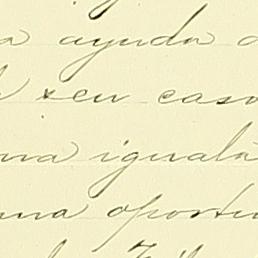 a ayuda a
seu caso
ma igualá
una oportu